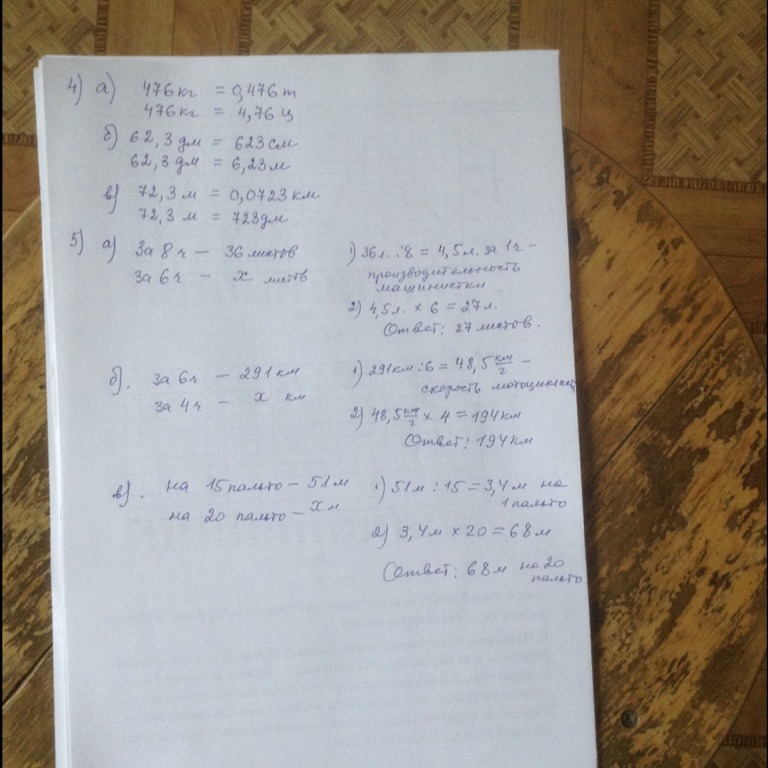 4) а) 476 кг = 0,476 т
476 кг = 4,76 ц
б) 62,3 дм = 623 см
62,3 дм = 6,23 м
в) 72,3 м = 0,0723 км
72,3 м = 723 дм
5) а) За 8 ч — 36 листов
За 6 ч — х листв
1) 36 л. : 8 = 4,5 л. за 1 ч —
производительность
машинистки
2) 4,5 л. × 6 = 27 л.
Ответ: 27 листов.
б). за 6 ч — 291 км
за 4 ч — х км
1) 291 км : 6 = 48,5 км/ч —
скорость
2) 48,5 км/ч × 4 = 194 км
Ответ: 194 км
в). на 15 пальто — 51 м
на 20 пальто — х м
1) 51 м : 15 = 3,4 м на
1 пальто
2) 3,4 м × 20 = 68 м
Ответ: 68 м на 20
пальто